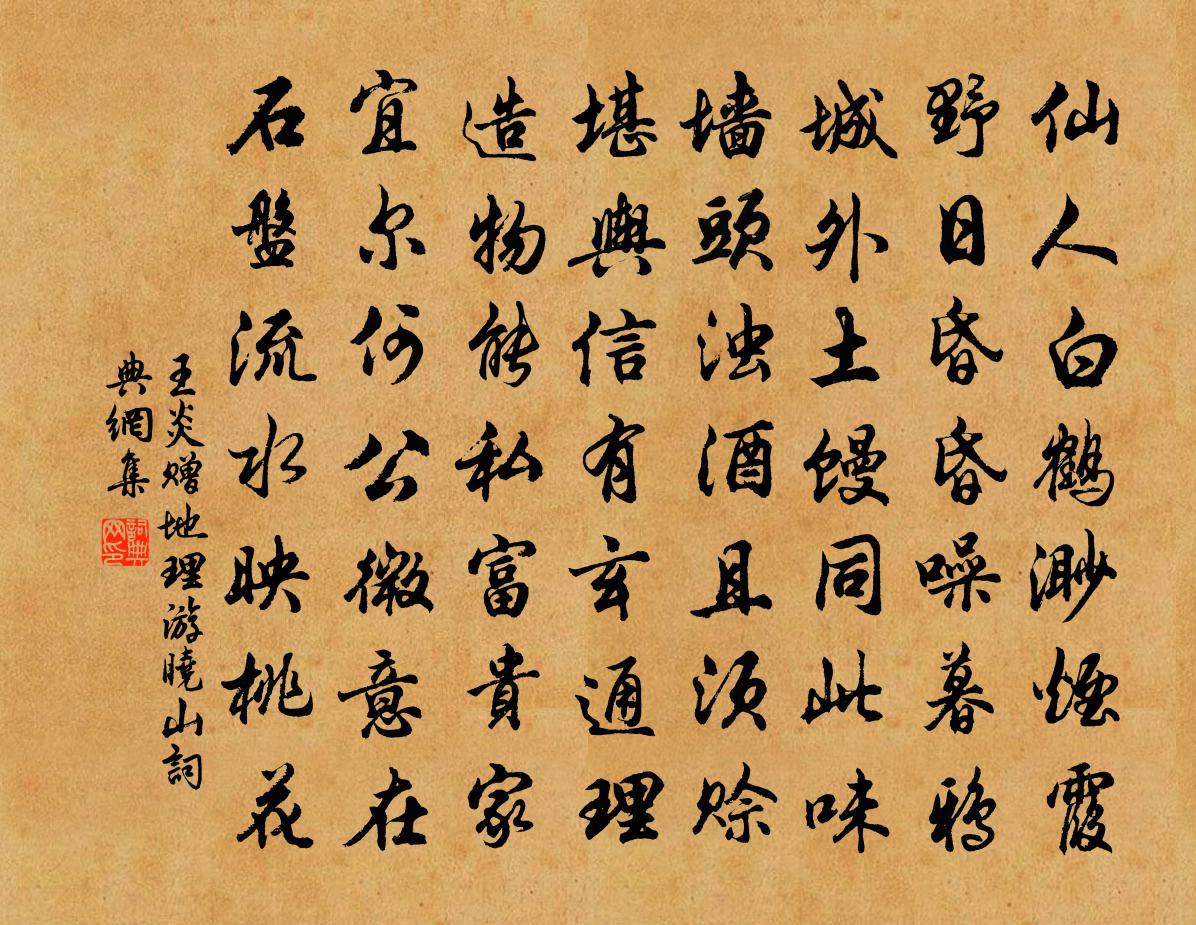 仙人白鶴渺煙霞
野日昏昏噪暮鴉
城外土饅同此味
墻頭浊酒且須賒
堪輿信有玄通理
造物能私富貴家
宜尔何公微意在
石盤流水映桃花
王炎赠地理游曉山詞
典網集
詞典网印